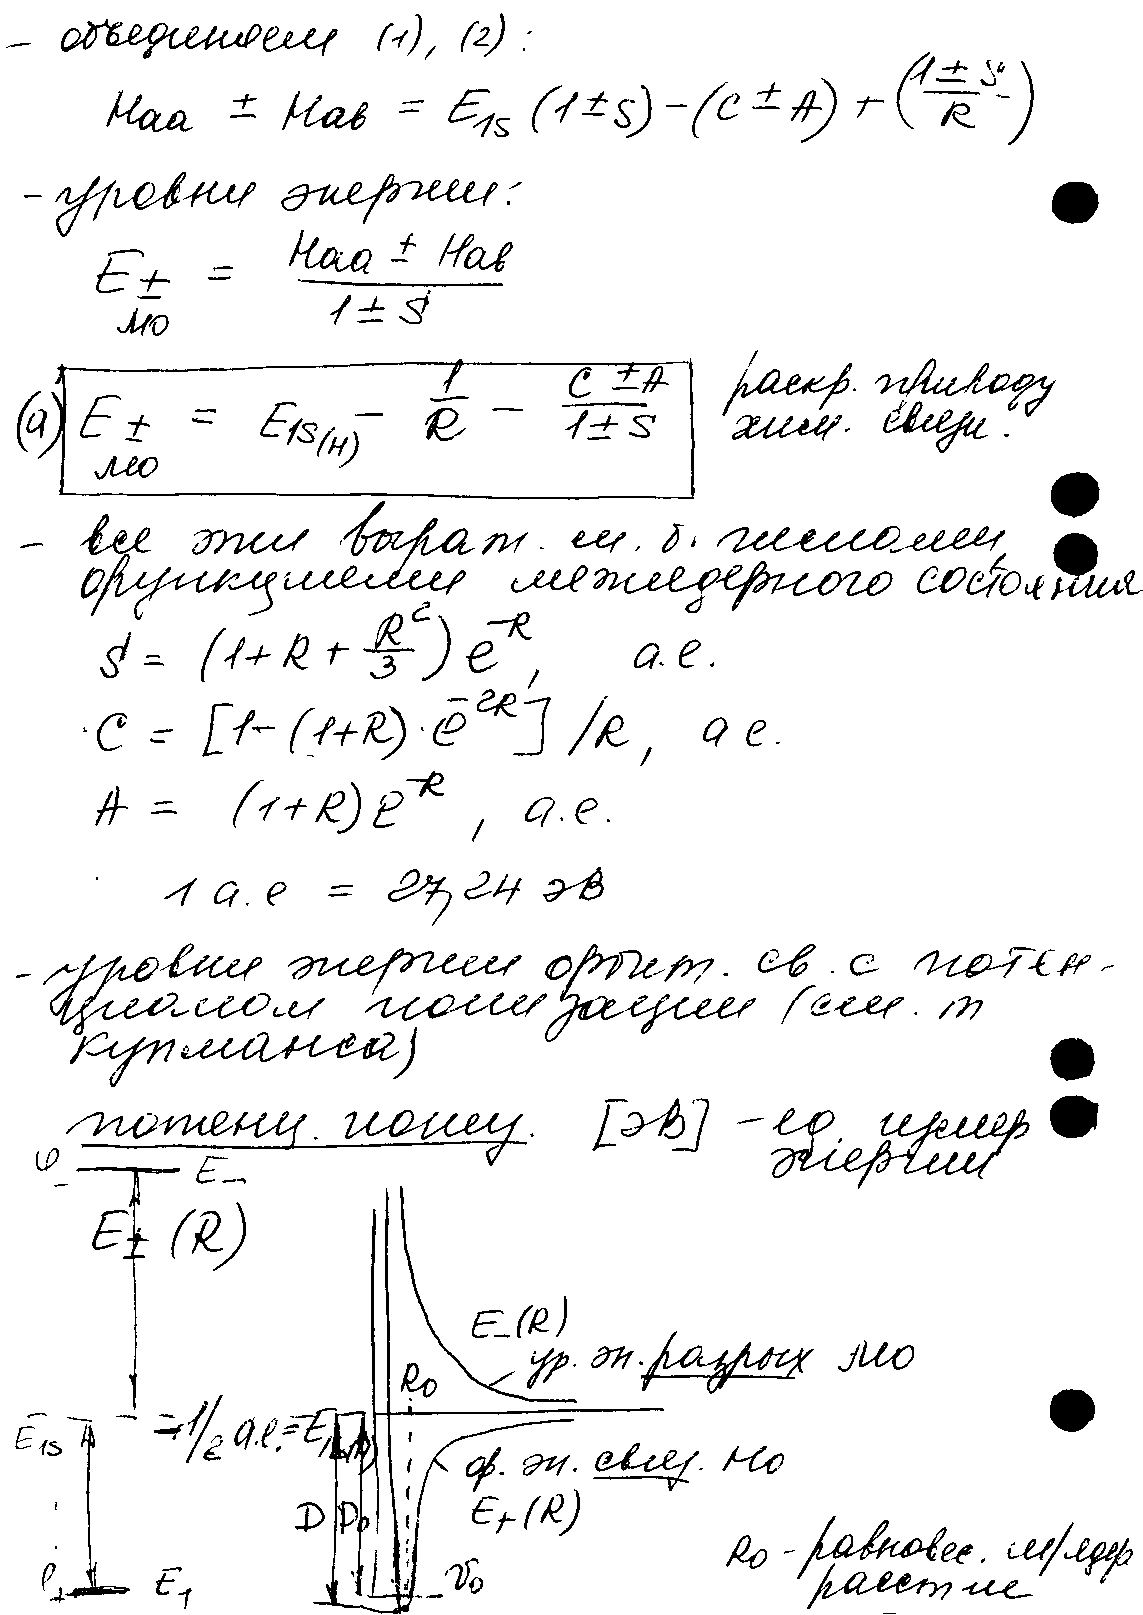 - объединяем (1), (2):
Haa ± Hав = E1S (1±S) - (C ± A) + ((1 ± S)/R)
- уровни энергии:
E± МО = (Haa ± Hав)/(1 ± S)
(a) E± МО = E1S(H) - 1/R - (C ± A)/(1 ± S)
раскр. природу
хим. связи.
- все эти выраж. м. б. числами,
функциями межядерного состояния
S = (1 + R + R²/3) e^-R, а.е.
C = [1-(1+R)·e^-2R] /R, а е.
A = (1+R) e^-R, а.е.
1 а.е = 27,24 эВ
- уровни энергии орбит. св. с потен-
циалом ионизации (см. т
Купманса)
потенц. иониз. [эВ] - ед. измер
энергии
φ- E-
E± (R)
E-(R)
ур. эн. разрых МО
R0
E1S -1/2 а.е. = E1S(H)
ф. эн. связ. МО
D D0 E+(R)
R0 - равновес. м/ядер
φ+ E1 v0
расст-ие